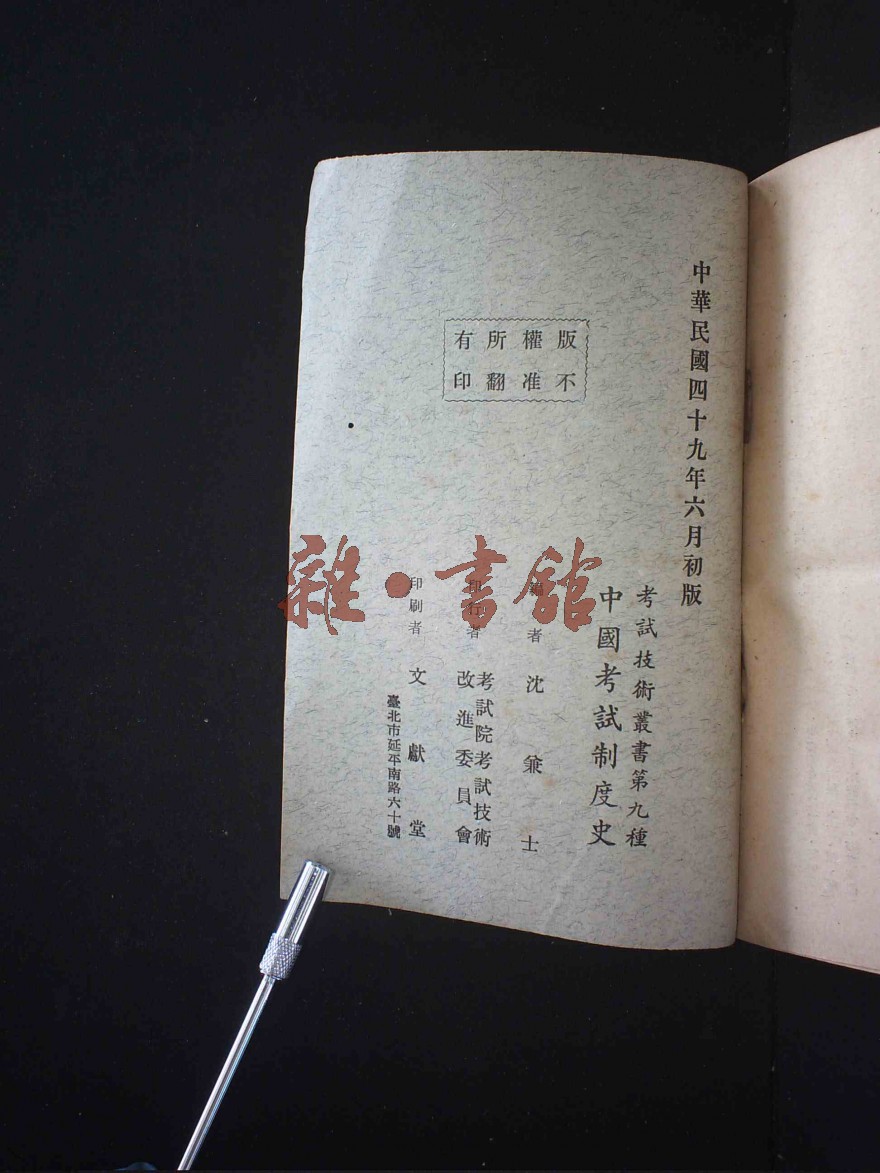 中華民國四十九年六月初版
考試技術叢書第九種
中國考試制度史
版權所有
不准翻印
編者 沈兼士
印行者 考試院考試技術
改進委員會
印刷者 文獻堂
臺北市延平南路六十號
雜·書館